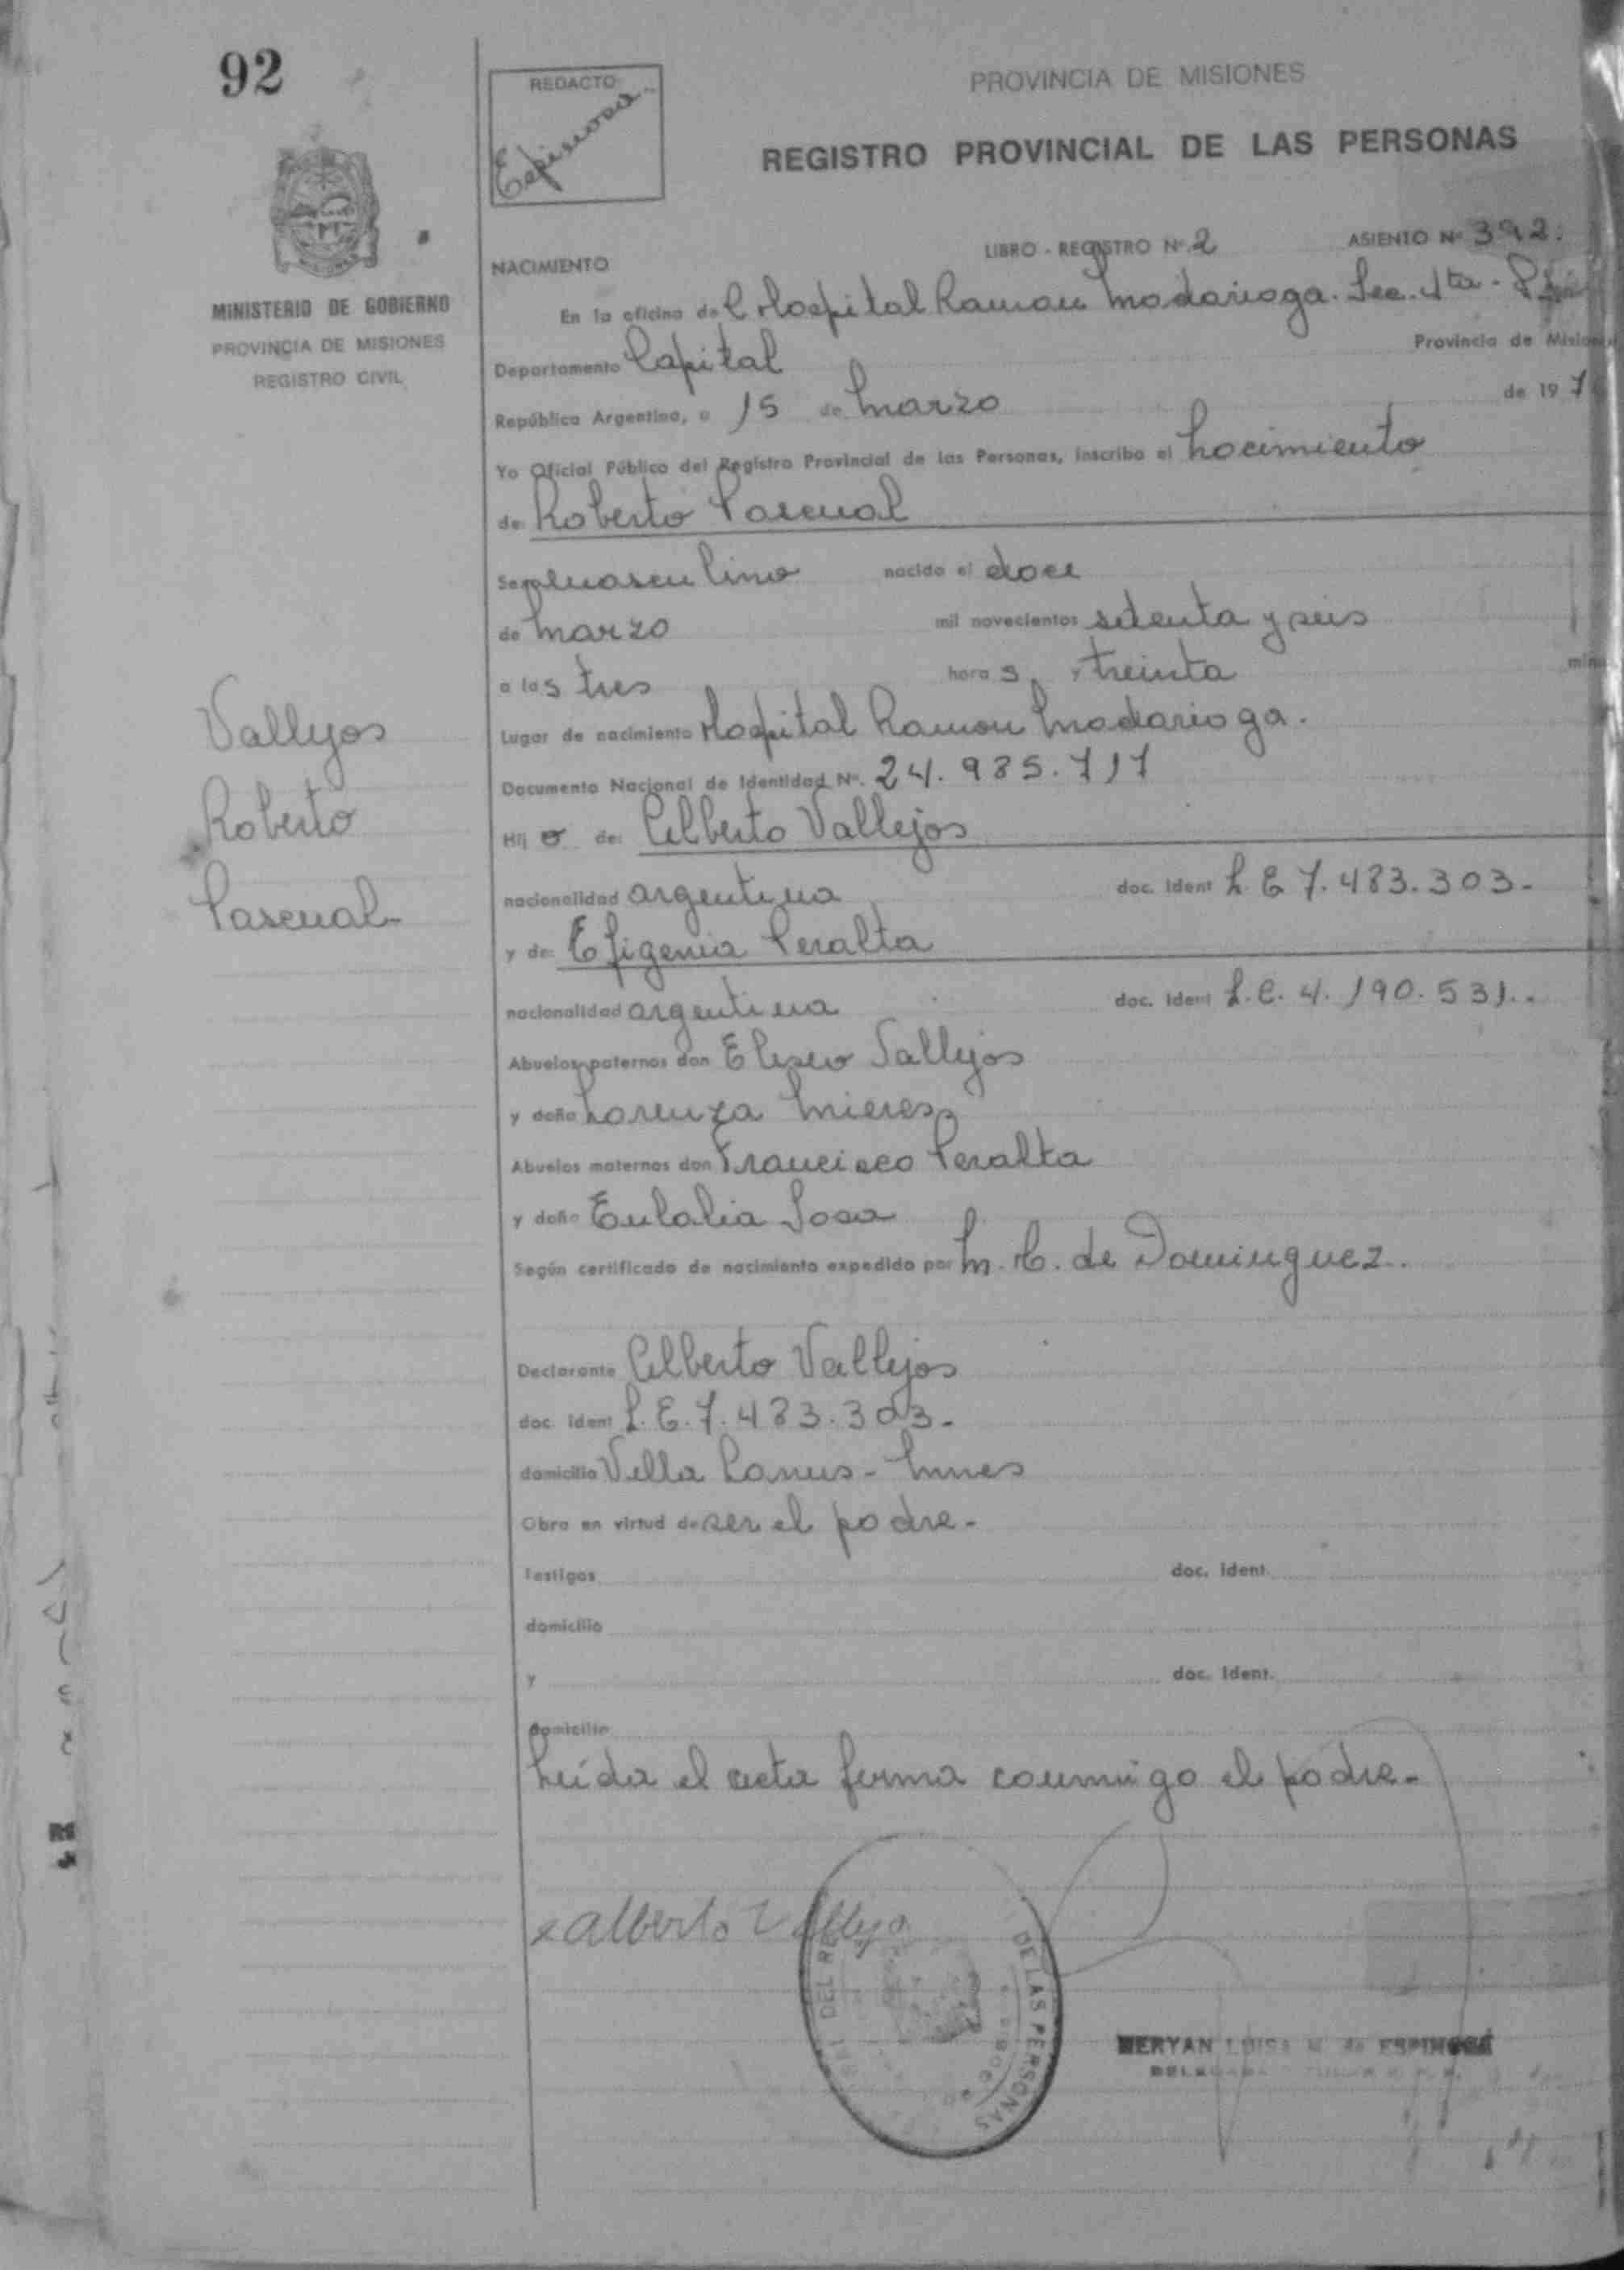 92
REDACTO
Espinosa
PROVINCIA DE MISIONES
REGISTRO PROVINCIAL DE LAS PERSONAS
MINISTERIO DE GOBIERNO
PROVINCIA DE MISIONES
REGISTRO CIVIL
NACIMIENTO
LIBRO - REGISTRO Nº 2 ASIENTO Nº 392.
En la oficina de Hospital Ramon Madariaga. Sec. 4ta -
Departamento Capital Provincia de
República Argentina, a 15 de Marzo de 197
Yo Oficial Público del Registro Provincial de las Personas, inscribo el nacimiento
de: Roberto Pascual
Sexo masculino nacido el doce
de Marzo mil novecientos setenta y seis
a las tres horas y treinta
Lugar de nacimiento Hospital Ramon Madariaga.
Documento Nacional de Identidad Nº. 24.985.717
Hijo de: Alberto Vallejos
nacionalidad argentina doc. Ident L.E 7.483.303-
y de: Efigenia Peralta
nacionalidad argentina doc. Ident L.C. 4.190.531.
Abuelos paternos don Eliseo Vallejos
y doña Lorenza Mieres
Abuelos maternos don Francisco Peralta
y doña Eulalia Sosa
Según certificado de nacimiento expedido por M. H. de Dominguez.
Declarante Alberto Vallejos
doc. Ident L.E. 7.483.303-
domicilio Villa Lanus - Mnes
Obra en virtud de ser el padre-
Testigos doc. Ident.
domicilio
y doc. Ident.
domicilio
Leída el acta firma conmigo el padre-
Vallejos
Roberto
Pascual-
x alberto Vallejo
DEL RE DE LAS PERSONAS
MERYAN LUISA M. de ESPINOSA